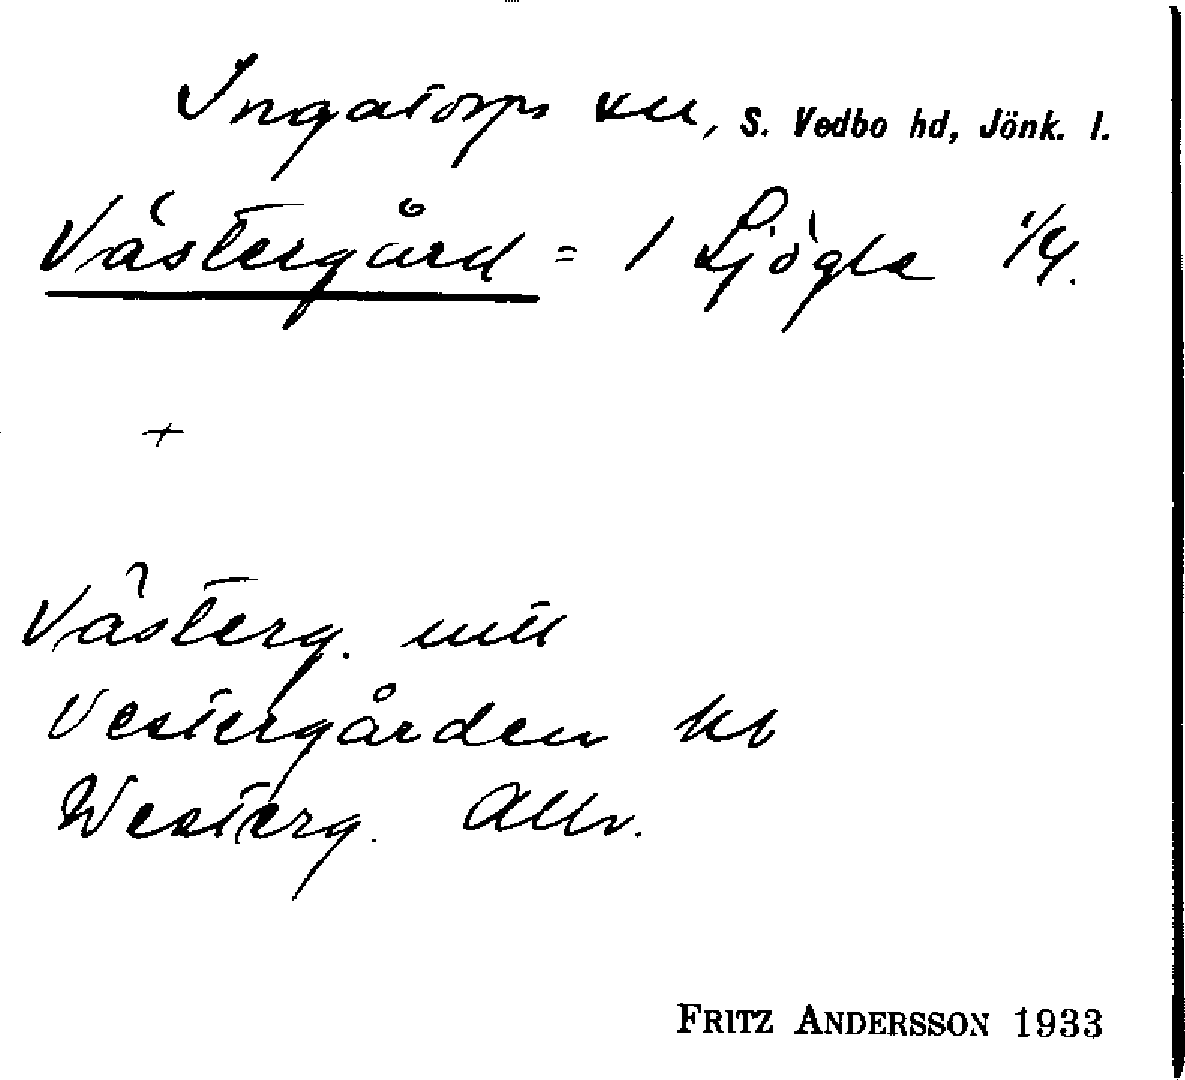 Ingatorps sn, S. Vedbo hd, Jönk. l.
Västergård = 1 Ljögla 1/4.
+
Västerg. mtl
Vestergården kb
Westerg. Allm.
FRITZ ANDERSSON 1933